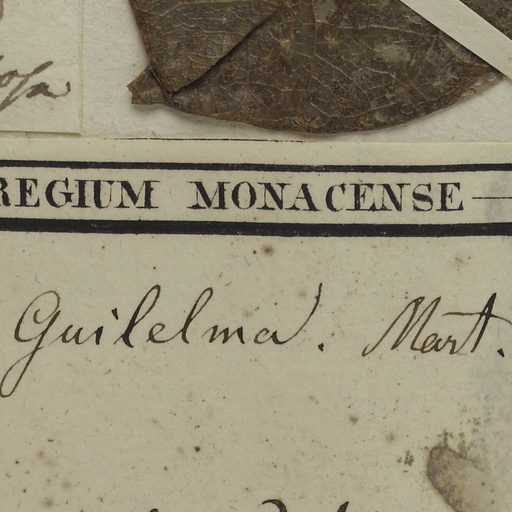 REGIUM MONACENSE
Guilelma. Mart.